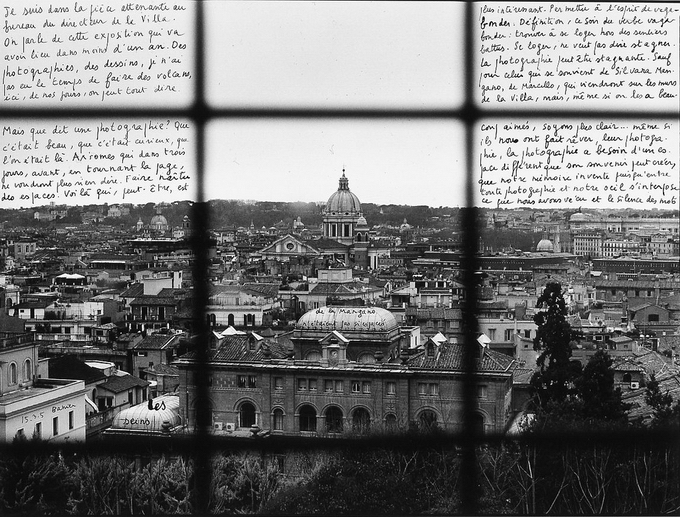 Je suis dans la pièce attenante au
bureau du directeur de la Villa.
On parle de cette exposition qui va
avoir lieu dans moins d'un an. Des
photographies, des dessins, je n'ai
pas eu le temps de faire des volcans,
ici, de nos jours, on peut tout dire.
Mais que dit une photographie? Que
c'était beau, que c'était curieux, que
l'on était là. Axiomes qui dans trois
jours, avant, en tournant la page,
ne voudront plus rien dire. Faire naître
des espaces. Voilà qui, peut-être, est
plus intéressant. Permettre à l'esprit de vaga-
bonder. Définition, ce soir du verbe vaga-
bonder: trouver à se loger hors des sentiers
battus. Se loger, ne veut pas dire stagner.
La photographie peut être stagnante. Sauf
pour celui qui se souvient de Silvana Man-
gano, de Marcello, qui viendront sur les murs
de la Villa, mais, même si on les a beau-
coup aimés, soyons plus clair... même si
ils nous ont fait rêver, leur photogra-
phie, la photographie a besoin d'un es-
pace différent que son souvenir peut créer,
que notre mémoire invente puisqu'entre
toute photographie et notre oeil s'interpose
ce que nous avons vécu et le silence des mots
de la Mangano.
n'étaient pas siliconés
les
seins
15.3.5